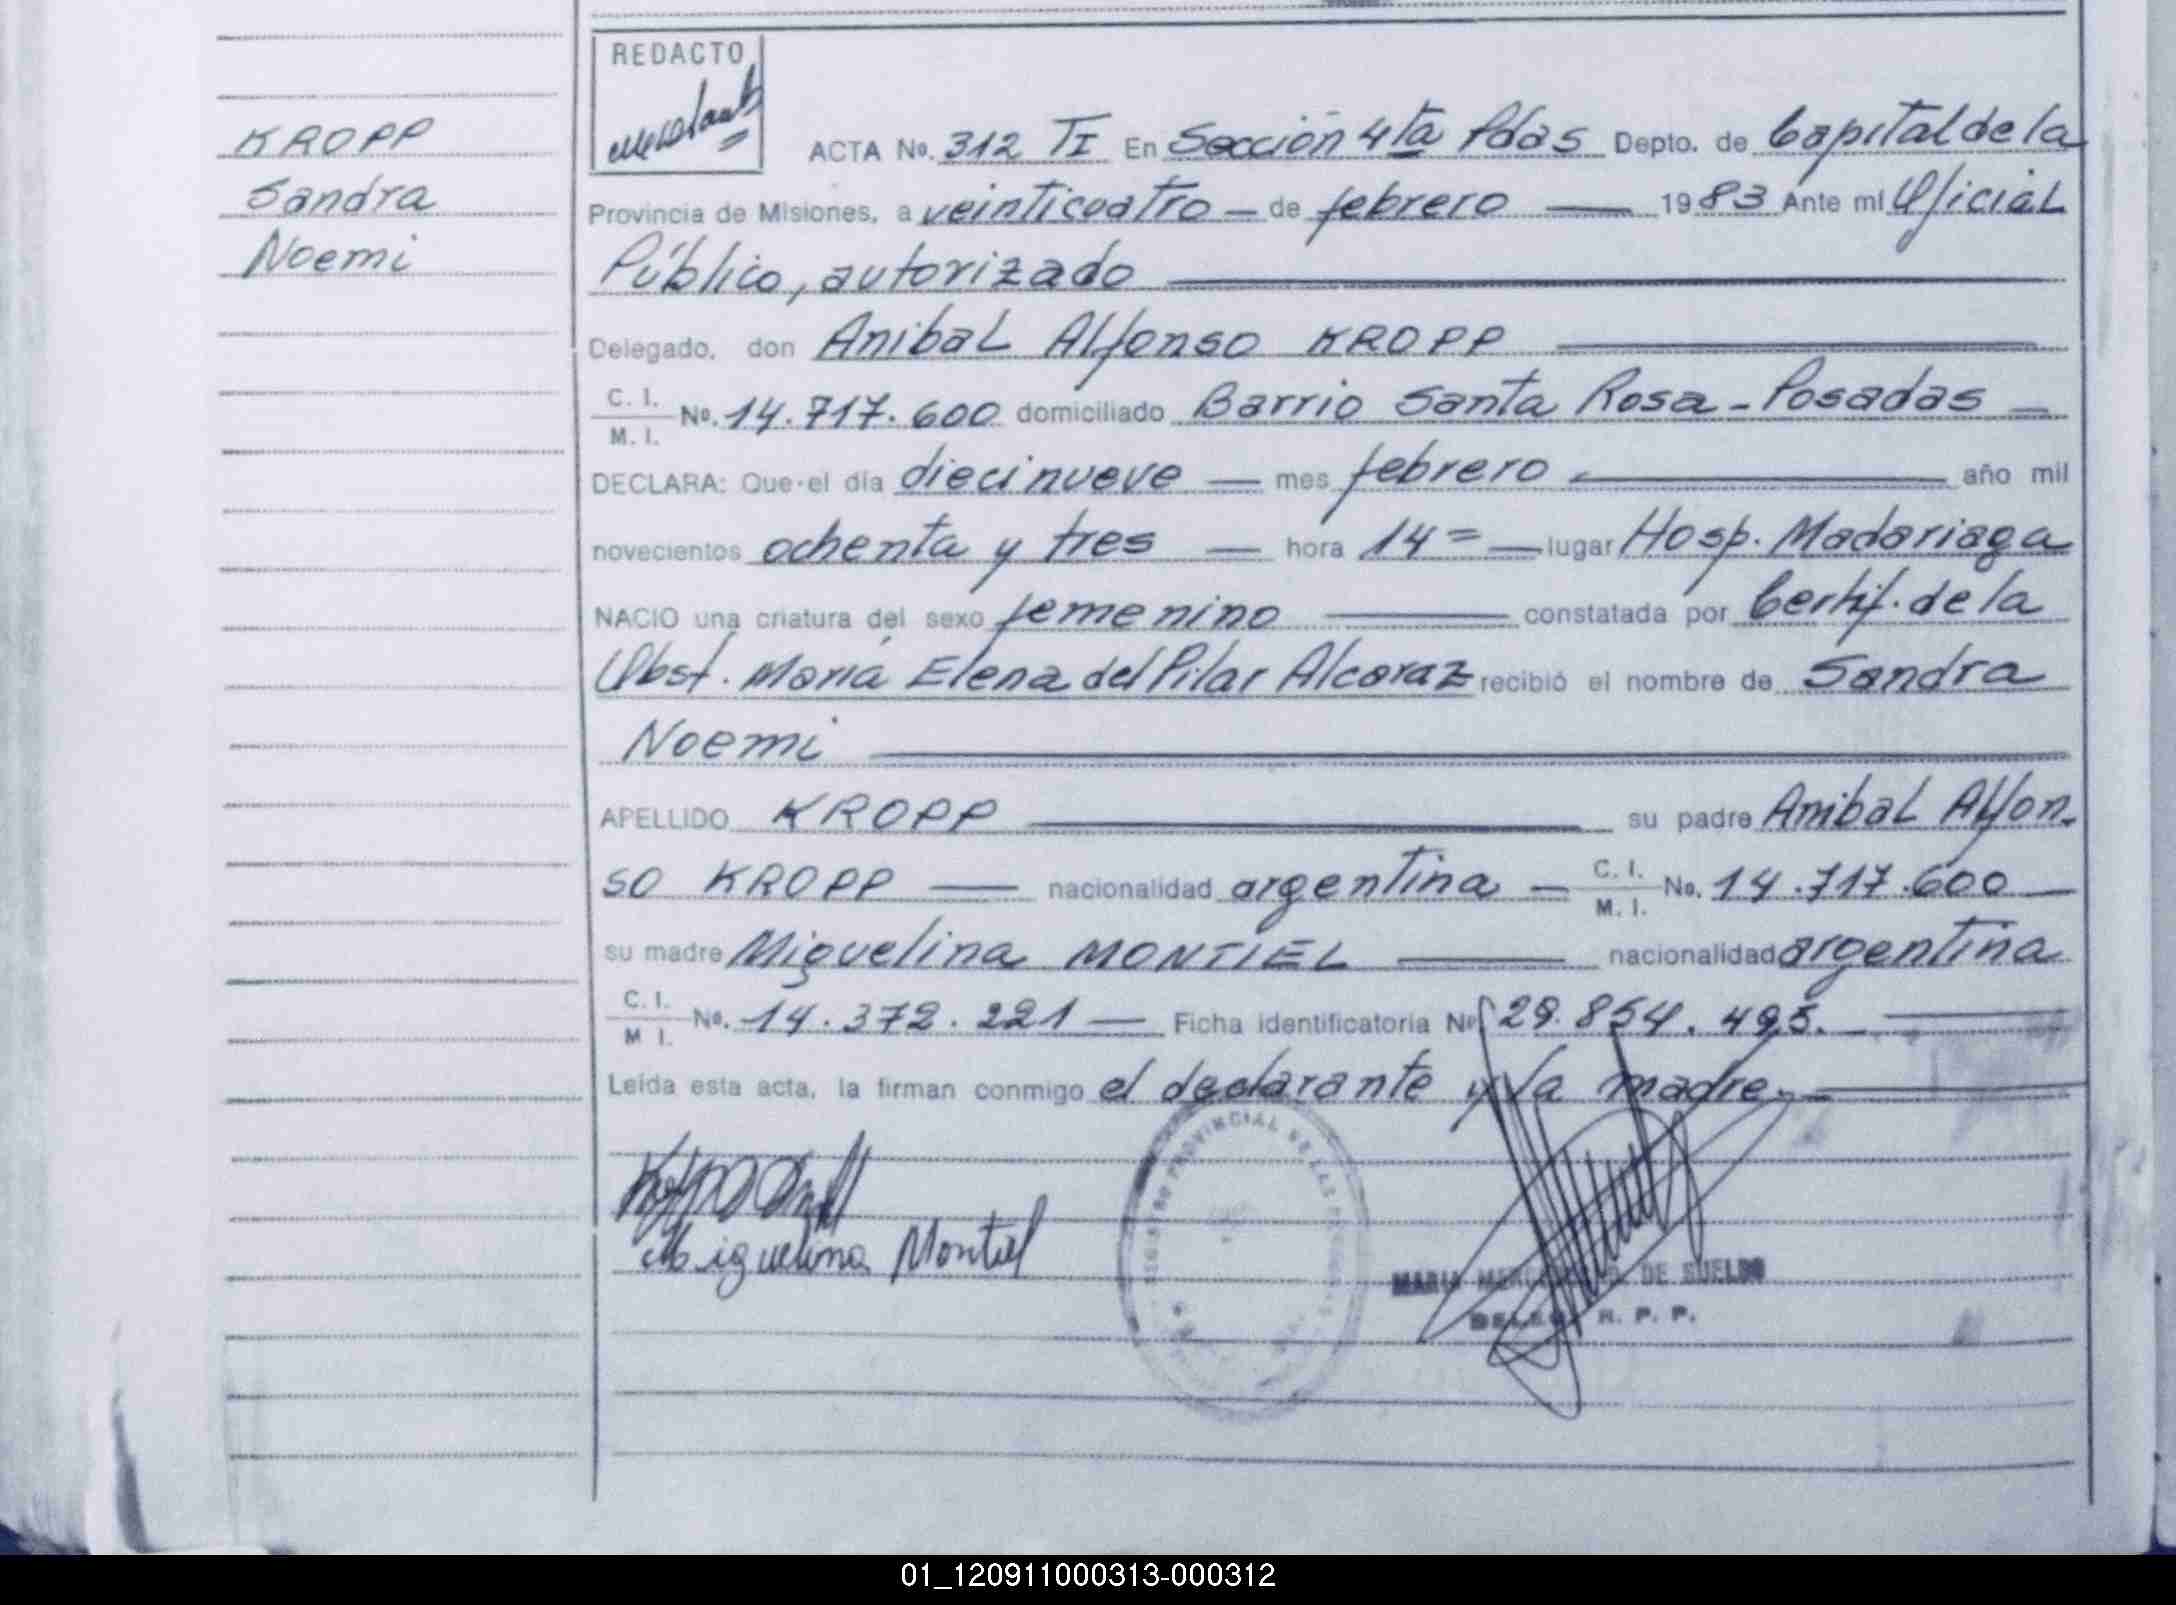 REDACTO
KROPP
Sandra
Noemi
ACTA No. 312 TI En Sección 4ta Pdas Depto. de Capital de la
Provincia de Misiones, a veinticuatro — de febrero — 1983 Ante mí Oficial
Público, autorizado
Delegado, don Anibal Alfonso KROPP
C. I.
M. I. No. 14.717.600 domiciliado Barrio Santa Rosa - Posadas —
DECLARA: Que el día diecinueve — mes febrero — año mil
novecientos ochenta y tres — hora 14= — lugar Hosp. Madariaga
NACIO una criatura del sexo femenino — constatada por Certif. de la
Obst. María Elena del Pilar Alcaraz recibió el nombre de Sandra
Noemi
APELLIDO KROPP — su padre Anibal Alfon-
so KROPP — nacionalidad argentina — C. I. M. I. No. 14.717.600 —
su madre Miguelina MONTIEL — nacionalidad argentina
C. I.
M I. No. 14.372.221 — Ficha identificatoria No 29.854.495. —
Leída esta acta, la firman conmigo el declarante y la madre. —
Miguelina Montiel
REGISTRO PROVINCIAL DE LAS PERSONAS
MARIA DE SUELDO
R. P. P.
01_120911000313-000312